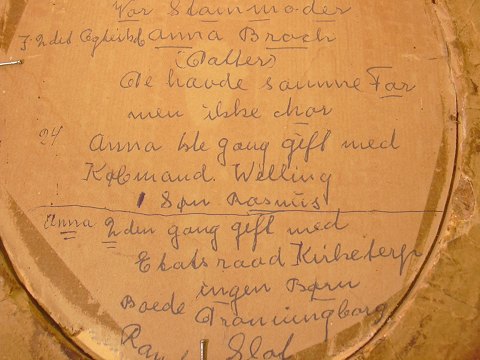 Vor Stammoder
I 2det Ægteskab Anna Broch
(Datter)
De havde samme Far
men ikke Mor
24 Anna 1ste gang gift med
Købmand. Welling
1 Søn Rasmus
Anna 2den gang gift med
Etatsraad Kirketerp
ingen Børn
Boede Dronningborg
Slot